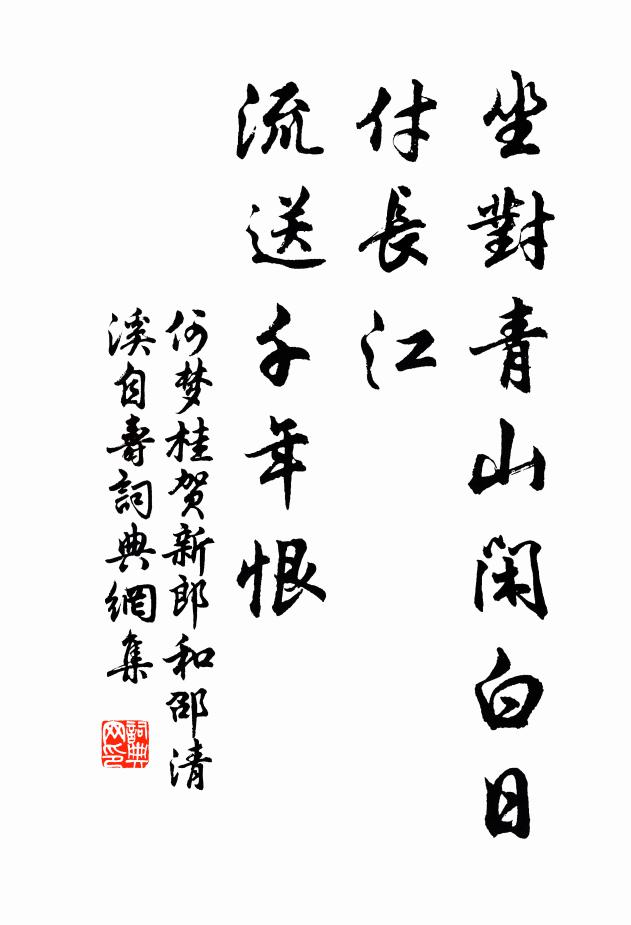 坐對青山閑白日
付長江
流送千年恨
何梦桂贺新郎和邵清
溪自壽詞典網集
詞典
网印